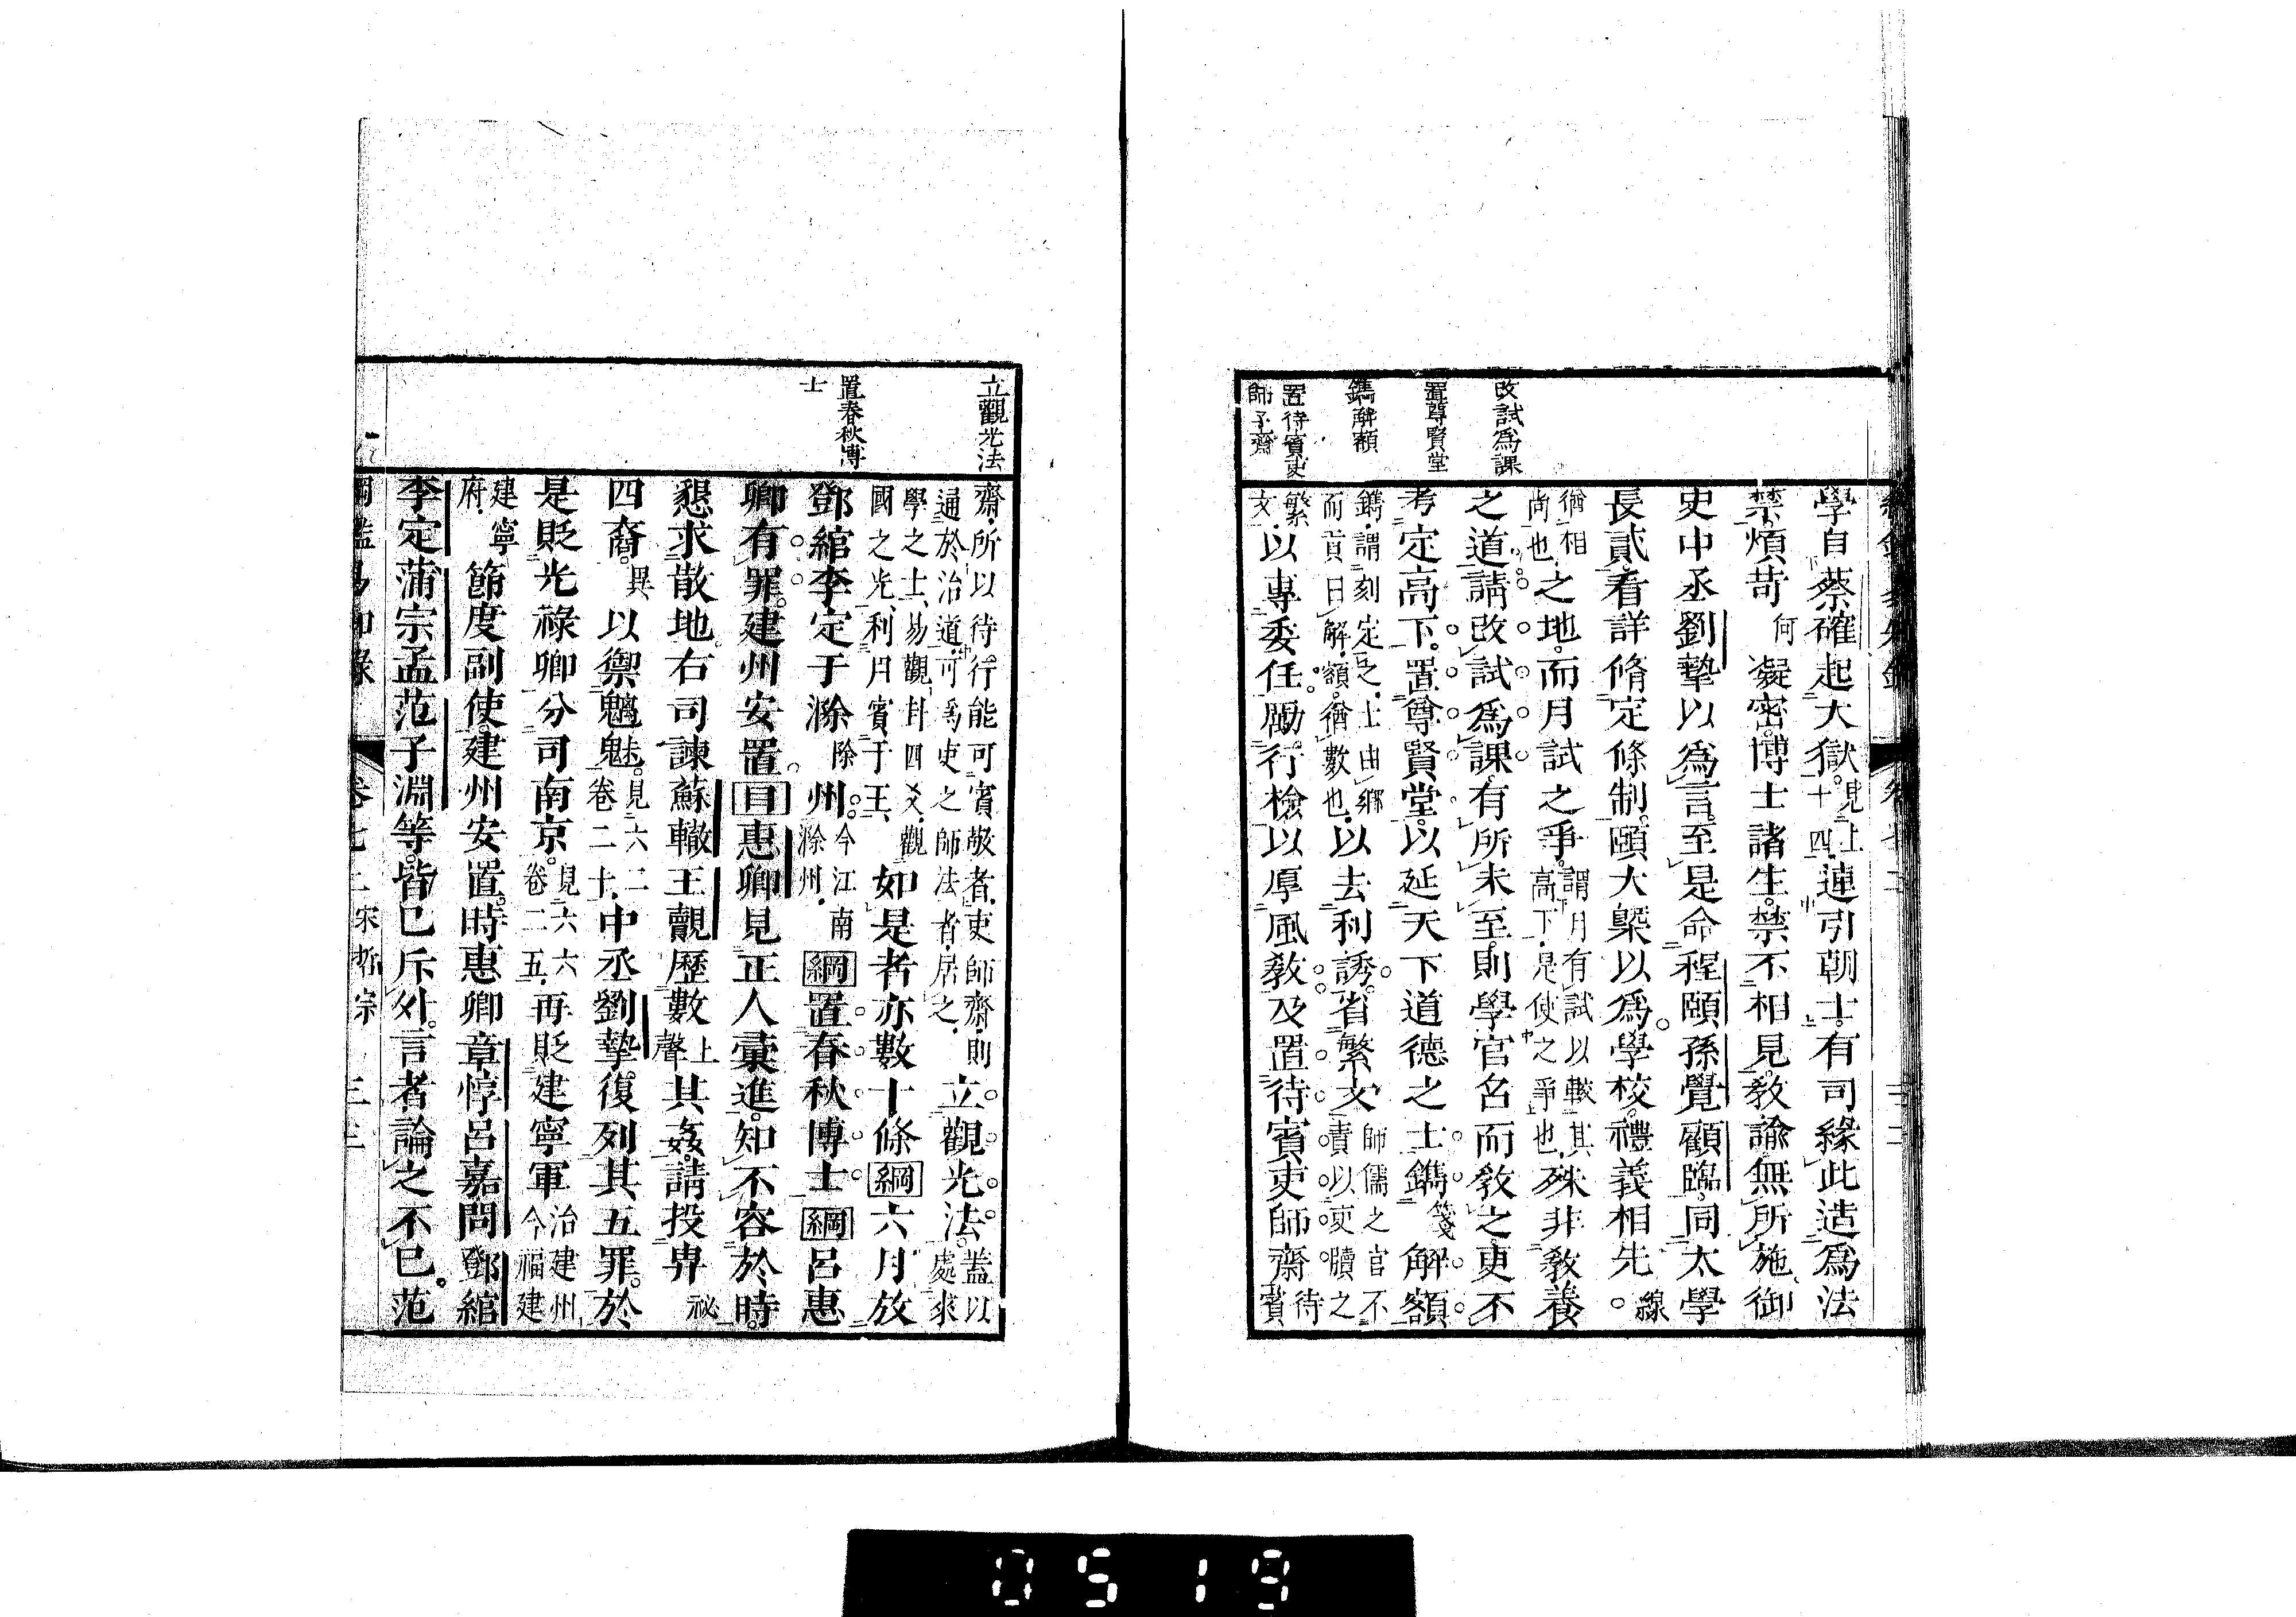 改試為課
置尊賢堂
鐫解額
置待賓吏
師子齋
學自蔡確起大獄見上十四連引朝士有司緣此造爲法
禁煩苛何凝密博士諸生禁不相見教諭無所施御
史中丞劉摯以爲言至是命程頤孫覺顧臨同太學
長貳看詳脩定條制頤大槩以爲學校禮義相先線
猶相尚也之地而月試之爭謂月有試以較其高下是使之爭也殊非教養
之道請改試爲課有所未至則學官名而教之更不
考定高下置尊賢堂以延天下道德之士鐫箋解額
鐫謂刻定之士由鄉而貢曰解額猶數也以去利誘省繁文師儒之官不責以吏牘之
繁文以專委任勵行檢以厚風教及置待賓吏師齋待賓
立觀光法
置春秋博
士
齋所以待行能可賓敬者吏師齋則通於治道可爲吏之師法者居之立觀光法蓋以處來
學之士易觀卦四爻觀國之光利用賓于王如是者亦數十條綱六月放
鄧綰李定于滁除州今江南滁州綱置春秋博士綱呂惠
卿有罪建州安置目惠卿見正人彙進知不容於時
懇求散地右司諫蘇轍王覿歷數上聲其姦請投畀祕
四裔異以禦魑魅見六二卷二十中丞劉摯復列其五罪於
是貶光祿卿分司南京見六六卷二五再貶建寧軍治建州今福建
建寧府節度副使建州安置時惠卿章惇呂嘉問鄧綰
李定蒲宗孟范子淵等皆已斥外言者論之不已范
卷七 宋哲宗
0519